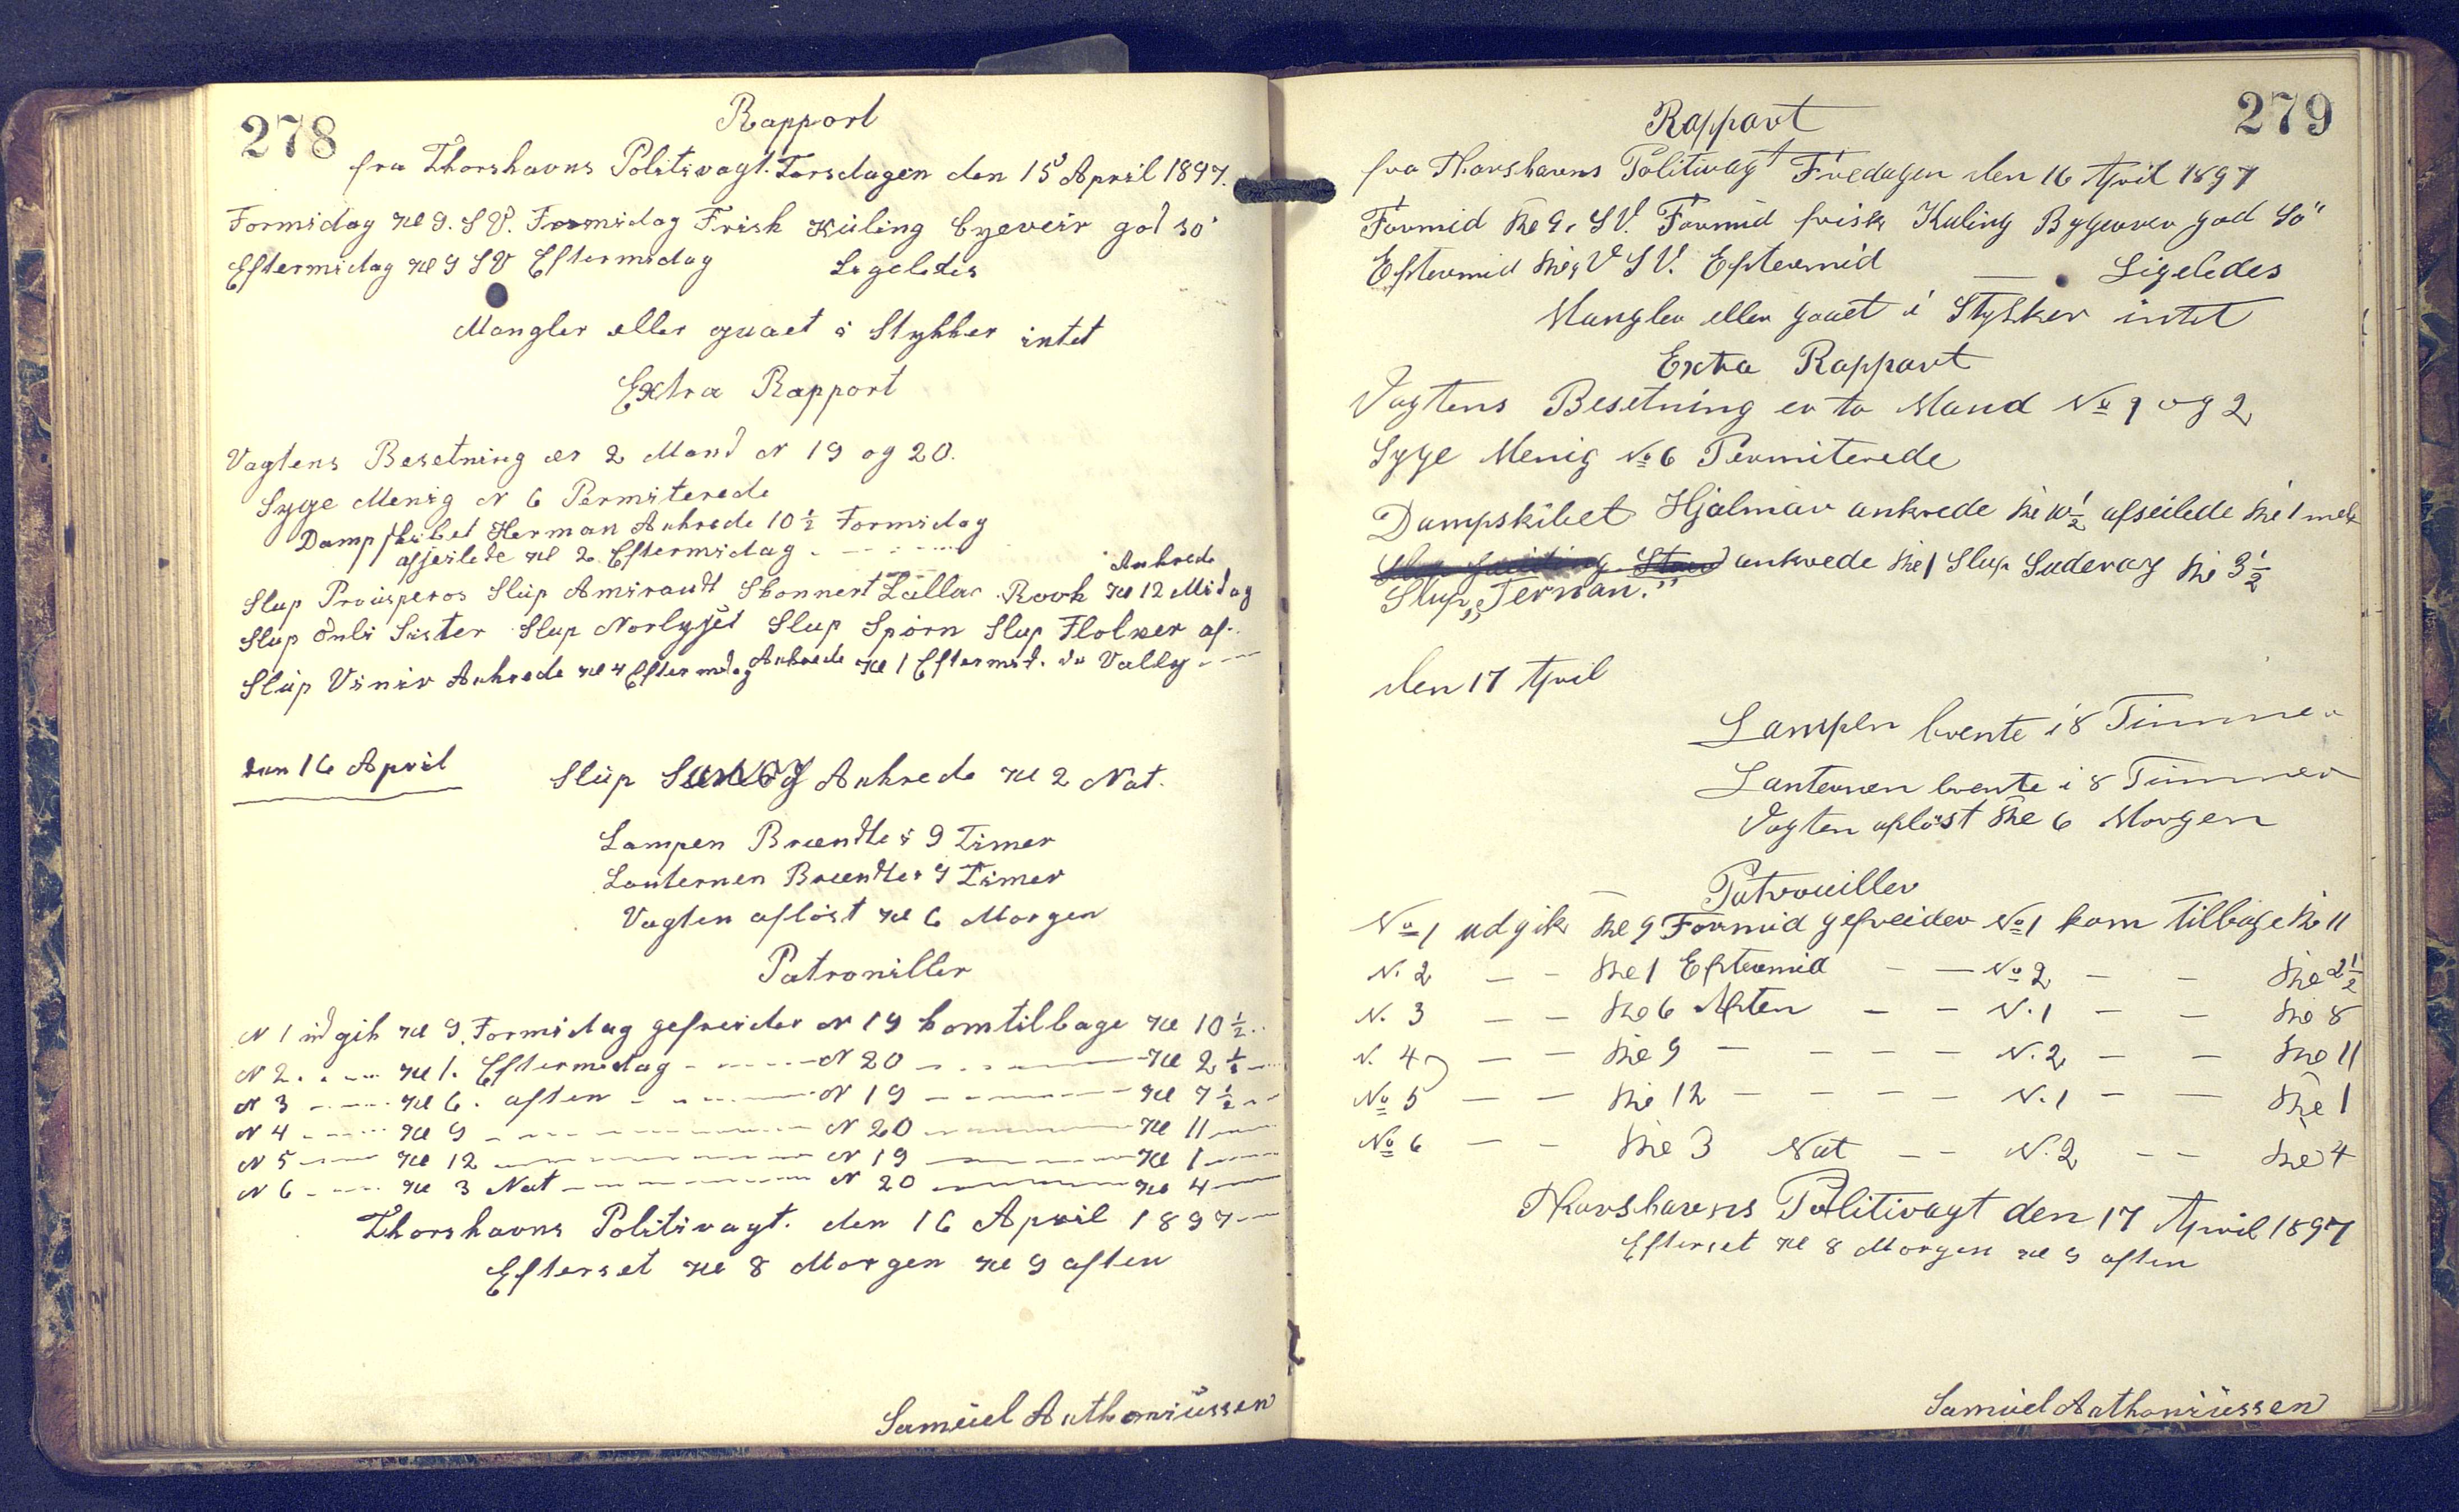 278
Rapport
fra Thorshavns Politivagt. Torsdagen den 15 April 1897.
Formidag Kl 9. S V. Formidag Frisk Kúling Bygeveir god so"
Eftermidag Kl 9 S V Eftermidag Ligeledes
Mangler eller gaaet i Stykker intet
Extra Rapport
Vagtens Besetning er 2 Mand N 19 og 20.
Syge Menig N 6 Permiterede
Dampskibet Herman Ankrede 10 ½ Formidag
afseilede Kl 2 Eftermidag
Ankrede
Slup Prousperos Slúp Amiraudt Skonnert Rook Kl 12 Midag
Slup Onli Sister Slup Norlyset Slup Sporn Slup af
Slúp Vinir Ankrede Kl 4 Eftermidag Ankrede Kl 1 Eftermid. Vally
den 16 April
Slúp Ankrede Kl 2 Nat.
Lampen Brændte i 9 Timer
Lanternen Brændte i 9 Timer
Vagten afløst Kl 6 Morgen
Patroniller
N 1 úd gik Kl 9. Formidag gefreider N 19 kom tilbage Kl 10 ½
N 2. Kl 1. Eftermidag N 20 Kl 2 ½
N 3 Kl 6. aften N 19 Kl 7 ½
N 4 Kl 9 N 20 Kl 11
N 5 Kl 12 N 19 Kl 1
N 6 Kl 3 Nat N 20 Kl 4
Thorshavns Politivagt. den 16 April 1897
Efterset Kl 8 Morgen Kl 9 aften
Samúel Anthoniússen
279
Rappart
fra Thorshavns Politivagt Fredagen den 16 April 1897
Formid Kl 9. SV. Formid frisk Kuling Bygeveir god So"
Eftermid Kl 9 V S V. Eftermid — Ligeledes
Mangler eller gaaet i Stykker intet
Extra Rappart
Vagtens Besetning er to Mand No 1 og 2
Syge Menig No 6 Permiterede
Dampskibet Hjalmar ankrede Kl 10 ½ afseilede Kl 1
ankrede Kl 1 Slup Suderoy Kl 3 ½
Slup „Ternan."
den 17 April
Lampen brente i 8 Timmer
Lanternen brente i 8 Timmer
Vagten afløst Kl 6 Morgen
Patrouiller
No 1 udgik Kl 9 Formid gefreider No 1 kom tilbage Kl 11
N. 2 — — Kl 1 Eftermid — — No 2 — — Kl 2 ½
N. 3 — — Kl 6 Aften — — N. 1 — — Kl 8
N. 4 — — Kl 9 — — — — N. 2 — — Kl 11
No 5 — — Kl 12 — — — — N. 1 — — Kl 1
No 6 — — Kl 3 Nat — — N. 2 — — Kl 4
Thorshavns Politivagt den 17 April 1897
Efterset Kl 8 Morgen Kl 9 aften
Samúel Anthoniússen